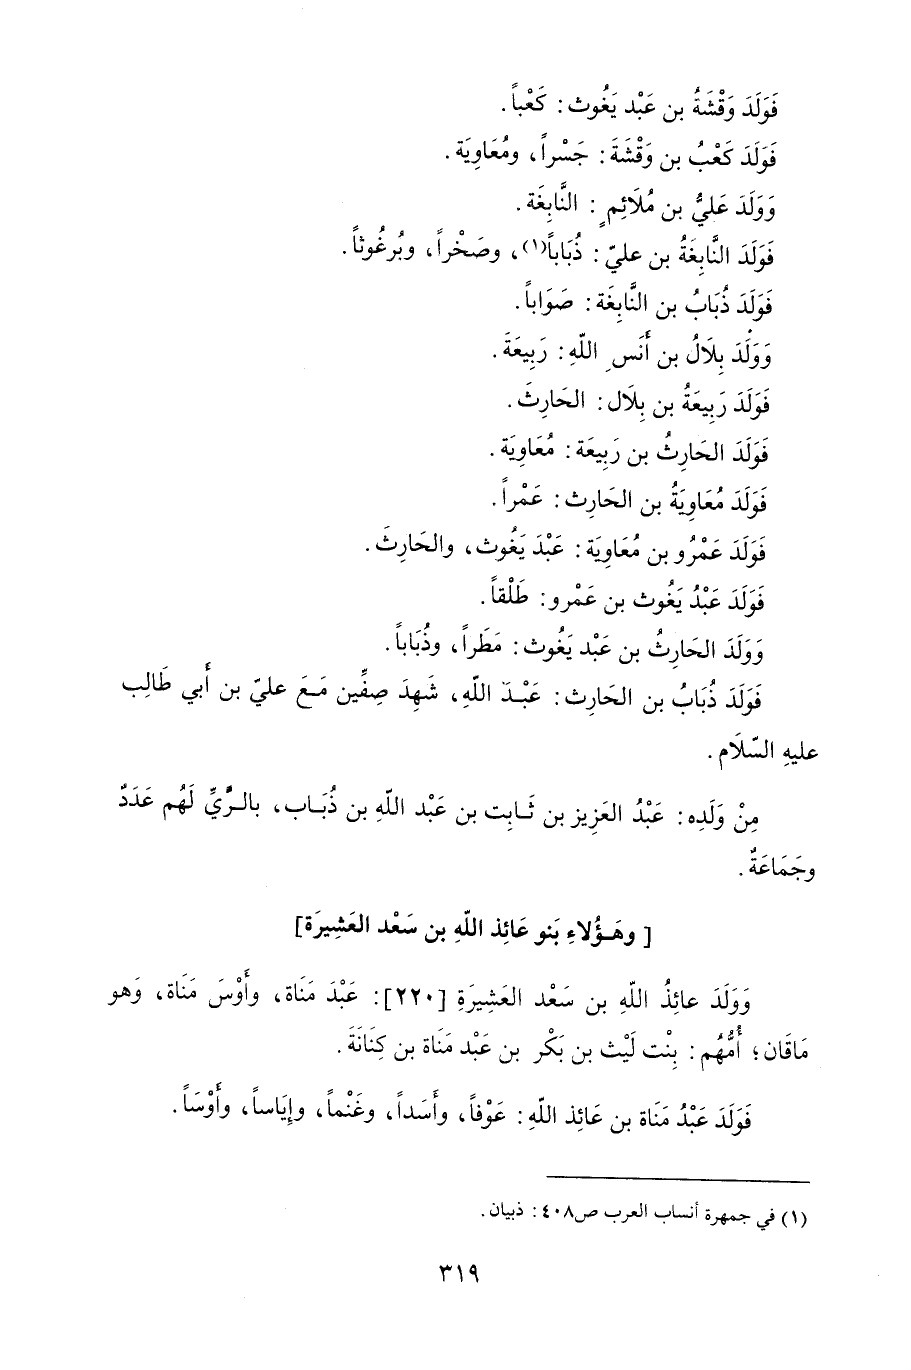 فَوَلَدَ وَقْشَةُ بن عَبْد يَغُوث : كَعْباً .
فَوَلَدَ كَعْبُ بن وَقْشَةَ : جَسْراً ، ومُعَاوِيَة .
وَوَلَدَ عَليُّ بن مُلَائِمٍ : النَّابِغَة .
فَوَلَدَ النَّابِغَةُ بن عليّ : ذُبَاباً(١) ، وصَخْراً ، وبُرغُوثاً .
فَوَلَدَ ذُبَابُ بن النَّابِغَة : صَوَاباً .
وَوَلَدَ بِلَالُ بن أَنَسِ اللّهِ : رَبِيعَةَ .
فَوَلَدَ رَبِيعَةُ بن بِلَال : الحَارِثَ .
فَوَلَدَ الحَارِثُ بن رَبِيعَة : مُعَاوِيَة .
فَوَلَدَ مُعَاوِيَةُ بن الحَارِث : عَمْراً .
فَوَلَدَ عَمْرُو بن مُعَاوِيَة : عَبْدَ يَغُوث ، والحَارِثَ .
فَوَلَدَ عَبْدُ يَغُوث بن عَمْرو : طَلْقاً .
وَوَلَدَ الحَارِثُ بن عَبْد يَغُوث : مَطَراً ، وذُبَاباً .
فَوَلَدَ ذُبَابُ بن الحَارِث : عَبْدَ اللّهِ ، شَهِدَ صِفِّين مَعَ عليّ بن أَبي طَالِب
عليهِ السّلَام .
مِنْ وَلَدِه : عَبْدُ العَزِيز بن ثَابِت بن عَبْد اللّهِ بن ذُبَاب ، بالرَّيِّ لَهُم عَدَدٌ
وجَمَاعَةٌ .
[ وهَؤُلاءِ بَنو عَائِذ اللّهِ بن سَعْد العَشِيرَة]
وَوَلَدَ عائِذُ اللّهِ بن سَعْد العَشِيرَةِ [٢٢٠] : عَبْدَ مَنَاة ، وأَوْسَ مَنَاة ، وَهو
مَاقَان ؛ أُمُّهُم : بِنْت لَيْث بن بَكْر بن عَبْد مَنَاة بن كِنَانَةَ .
فَوَلَدَ عَبْدُ مَنَاة بن عَائِذ اللّهِ : عَوْفاً ، وأَسَداً ، وغَنْماً ، وإِيَاساً ، وأَوْسَاً .
(١) في جمهرة أنساب العرب ص٤٠٨ : ذبيان .
٣١٩